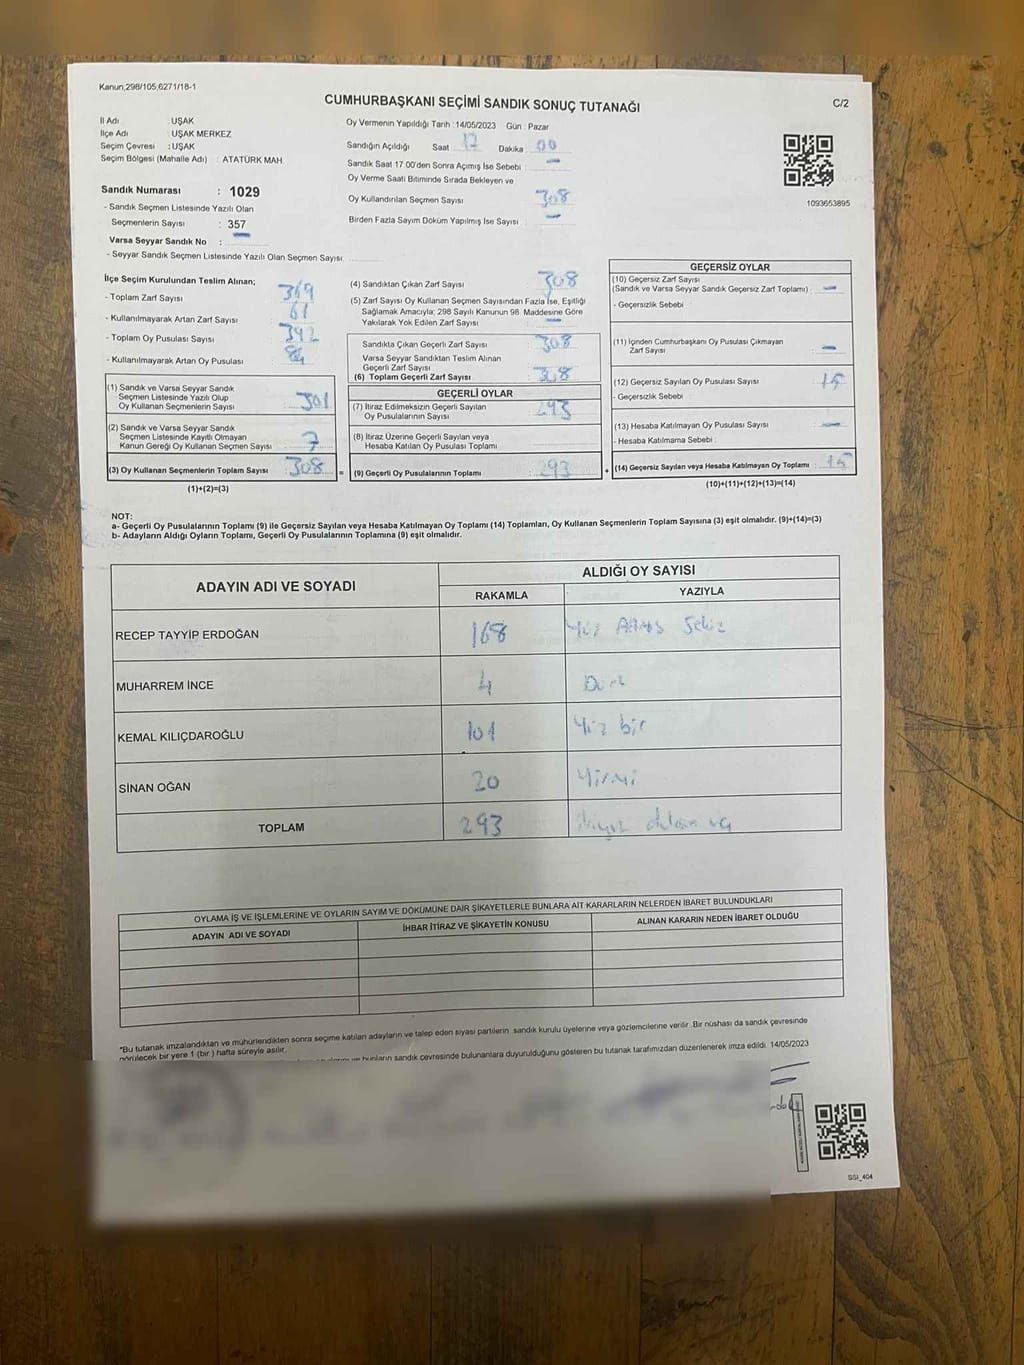 Kanun;298/105,6271/18-1
CUMHURBAŞKANI SEÇİMİ SANDIK SONUÇ TUTANAĞI
C/2
İl Adı : UŞAK
İlçe Adı : UŞAK MERKEZ
Seçim Çevresi : UŞAK
Seçim Bölgesi (Mahalle Adı) : ATATÜRK MAH
Sandık Numarası : 1029
- Sandık Seçmen Listesinde Yazılı Olan
Seçmenlerin Sayısı : 357
Varsa Seyyar Sandık No : —
- Seyyar Sandık Seçmen Listesinde Yazılı Olan Seçmen Sayısı:
Oy Vermenin Yapıldığı Tarih : 14/05/2023 Gün : Pazar
Sandığın Açıldığı Saat 17 Dakika 00
Sandık Saat 17 00'den Sonra Açımış İse Sebebi : —
Oy Verme Saati Bitiminde Sırada Bekleyen ve
Oy Kullandırılan Seçmen Sayısı 308
Birden Fazla Sayım Döküm Yapılmış İse Sayısı : —
1093653895
İlçe Seçim Kurulundan Teslim Alınan;
- Toplam Zarf Sayısı 369
- Kullanılmayarak Artan Zarf Sayısı 61
- Toplam Oy Pusulası Sayısı 392
- Kullanılmayarak Artan Oy Pusulası 84
(1) Sandık ve Varsa Seyyar Sandık
Seçmen Listesinde Yazılı Olup
Oy Kullanan Seçmenlerin Sayısı 301
(2) Sandık ve Varsa Seyyar Sandık
Seçmen Listesinde Kayıtlı Olmayan
Kanun Gereği Oy Kullanan Seçmen Sayısı 7
(3) Oy Kullanan Seçmenlerin Toplam Sayısı 308 =
(1)+(2)=(3)
(4) Sandıktan Çıkan Zarf Sayısı 308
(5) Zarf Sayısı Oy Kullanan Seçmen Sayısından Fazla İse, Eşitliği
Sağlamak Amacıyla; 298 Sayılı Kanunun 98. Maddesine Göre
Yakılarak Yok Edilen Zarf Sayısı —
Sandıkta Çıkan Geçerli Zarf Sayısı 308
Varsa Seyyar Sandıktan Teslim Alınan
Geçerli Zarf Sayısı
(6) Toplam Geçerli Zarf Sayısı 308
GEÇERLİ OYLAR
(7) İtiraz Edilmeksizin Geçerli Sayılan
Oy Pusulalarının Sayısı 293
(8) İtiraz Üzerine Geçerli Sayılan veya
Hesaba Katılan Oy Pusulası Toplamı
(9) Geçerli Oy Pusulalarının Toplamı 293 +
GEÇERSİZ OYLAR
(10) Geçersiz Zarf Sayısı
(Sandık ve Varsa Seyyar Sandık Geçersiz Zarf Toplamı) —
- Geçersizlik Sebebi :
(11) İçinden Cumhurbaşkanı Oy Pusulası Çıkmayan
Zarf Sayısı —
(12) Geçersiz Sayılan Oy Pusulası Sayısı 15
- Geçersizlik Sebebi :
(13) Hesaba Katılmayan Oy Pusulası Sayısı —
- Hesaba Katılmama Sebebi :
(14) Geçersiz Sayılan veya Hesaba Katılmayan Oy Toplamı 15
(10)+(11)+(12)+(13)=(14)
NOT:
a- Geçerli Oy Pusulalarının Toplamı (9) ile Geçersiz Sayılan veya Hesaba Katılmayan Oy Toplamı (14) Toplamları, Oy Kullanan Seçmenlerin Toplam Sayısına (3) eşit olmalıdır. (9)+(14)=(3)
b- Adayların Aldığı Oyların Toplamı, Geçerli Oy Pusulalarının Toplamına (9) eşit olmalıdır.
ADAYIN ADI VE SOYADI
ALDIĞI OY SAYISI
RAKAMLA YAZIYLA
RECEP TAYYİP ERDOĞAN 168 Yüz Altmış Sekiz
MUHARREM İNCE 4 Dört
KEMAL KILIÇDAROĞLU 101 Yüz bir
SİNAN OĞAN 20 Yirmi
TOPLAM 293 ikiyüz doksan üç
OYLAMA İŞ VE İŞLEMLERİNE VE OYLARIN SAYIM VE DÖKÜMÜNE DAİR ŞİKAYETLERLE BUNLARA AİT KARARLARIN NELERDEN İBARET BULUNDUKLARI
ADAYIN ADI VE SOYADI İHBAR İTİRAZ VE ŞİKAYETİN KONUSU ALINAN KARARIN NEDEN İBARET OLDUĞU
*Bu tutanak imzalandıktan ve mühürlendikten sonra seçime katılan adayların ve talep eden siyasi partilerin sandık kurulu üyelerine veya gözlemcilerine verilir .Bir nüshası da sandık çevresinde
görülecek bir yere 1 (bir ) hafta süreyle asılır.
bunların sandık çevresinde bulunanlara duyurulduğunu gösteren bu tutanak tarafımızdan düzenlenerek imza edildi. 14/05/2023
SSI_404